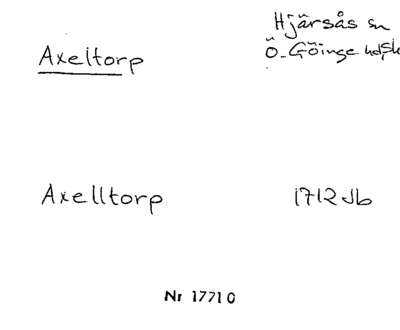 Hjärsås sn
Axeltorp
Ö. Göinge hd, Sk
Axelltorp 1712 Jb
Nr 17710